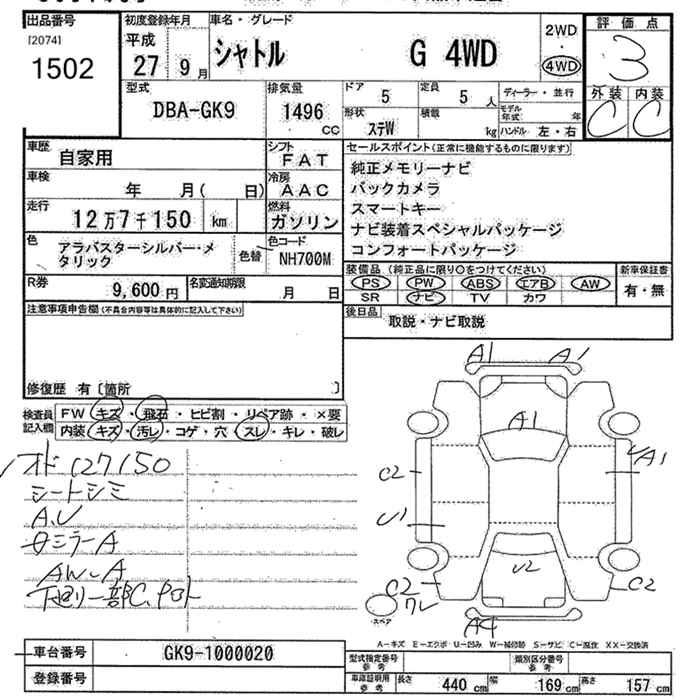 出品番号 初度登録年月 車名・グレード 評価点
[2074] 平成 2WD
1502 27 9月 シャトル G 4WD ・ 3
4WD
型式 排気量 ドア 定員 ディーラー・並行 外装 内装
DBA-GK9 1496 cc 5 5 人 モデル年式 年 C C
形状 ステW 積載 kg ハンドル 左・右
車歴 自家用 シフト FAT セールスポイント(正常に機能するものに限ります)
車検 年 月( 日) 冷房 AAC 純正メモリーナビ
バックカメラ
走行 12万7千150 km 燃料 ガソリン スマートキー
ナビ装着スペシャルパッケージ
色 アラバスターシルバー・メタリック 色替 色コード NH700M コンフォートパッケージ
R券 9,600円 名変通知期限 月 日 装備品(純正品に限り○をつけてください) 新車保証書
PS PW ABS エアB AW 有・無
SR ナビ TV カワ
注意事項申告欄(不具合内容等は具体的に記入して下さい) 後日品 取説・ナビ取説
修復歴 有〔箇所 〕
検査員記入欄 FW キズ・飛石・ヒビ割・リペア跡・×要
内装 キズ・汚レ・コゲ・穴・スレ・キレ・破レ
127150
シートシミ
A、U
ミラーA
AW-A
下廻り一部C、
A1 A1
A1
C2 A1
U1
U2
C2 C2
ワレ
スペア
A4
A-キズ E-エクボ U-凹み W-補修跡 S-サビ C-腐食 XX-交換済
車台番号 GK9-1000020 型式指定番号 参考 類別区分番号 参考
登録番号 車庫証明用 参考 長さ 440 cm 幅 169 cm 高さ 157 cm